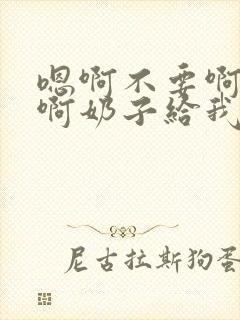 嗯啊不要啊
啊奶子给我
尼古拉斯狗蛋